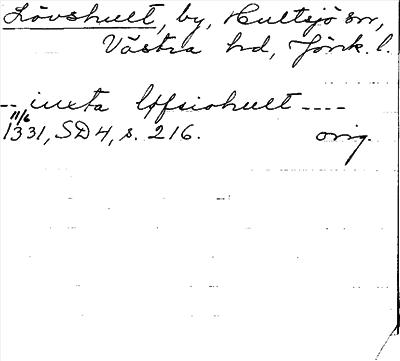 Lövshult, by, Hultsjö sn,
Västra hd, Jönk. l.
-- iuxta Løfsiohult ----
11/6
1331, SD 4, s. 216. orig.